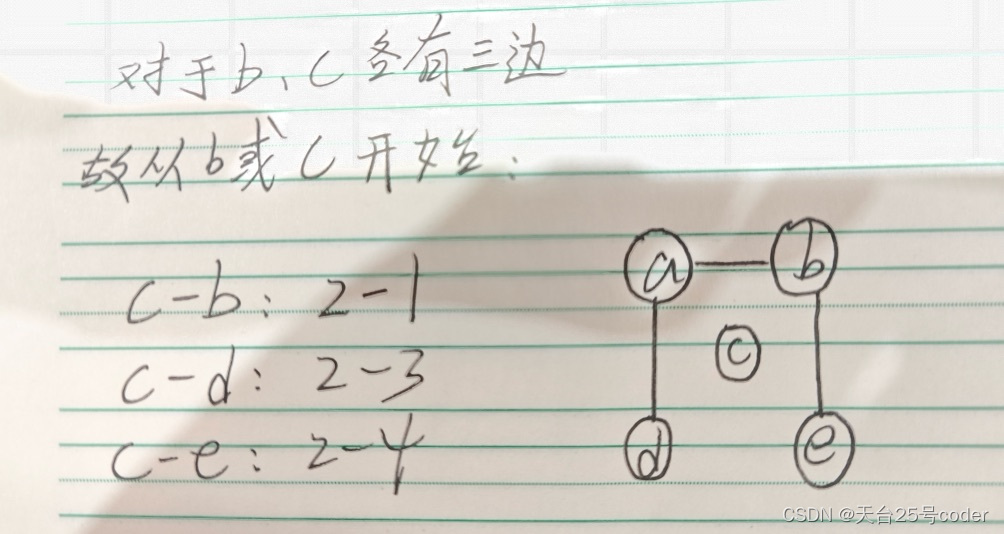 对于b、c各有三边
故从b或c开始：
c-b：2-1
c-d：2-3
c-e：2-4
a b
c
d e
CSDN @天台25号coder